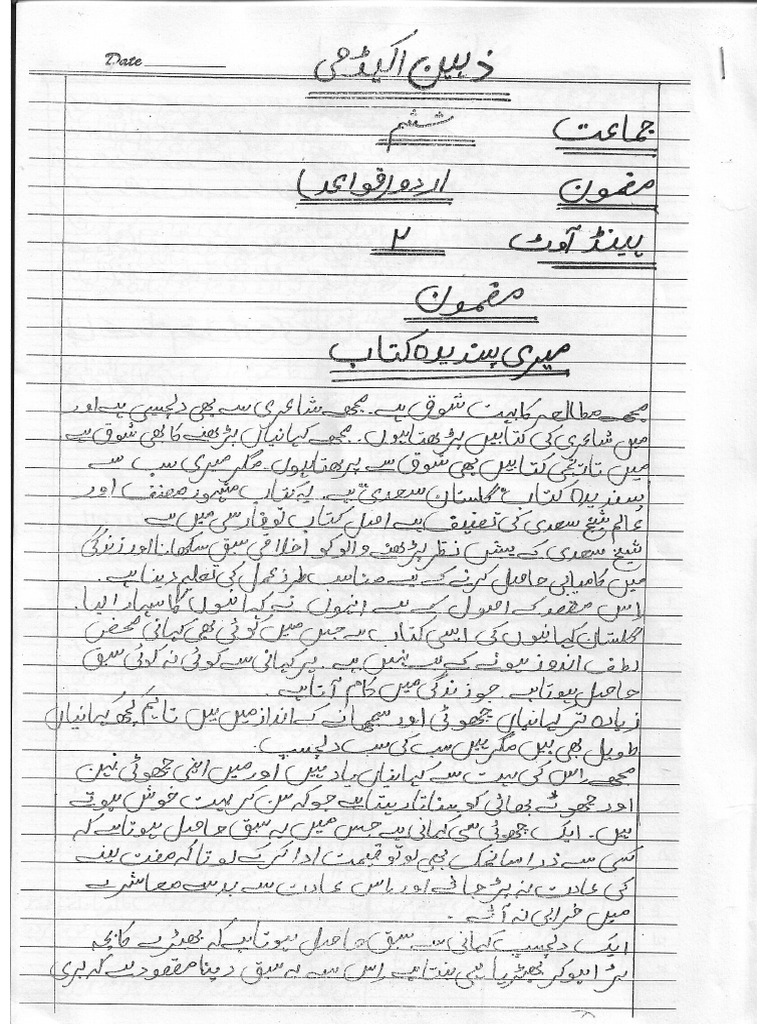 Date
ذہین اکیڈمی
جماعت ششم
مضمون اردو (قواعد)
ہینڈ آوٹ ۲
مضمون
میری پسندیدہ کتاب
مجھے مطالعہ کا بہت شوق ہے۔ مجھے شاعری سے بھی دلچسپی ہے اور
میں شاعری کی کتابیں پڑھتا ہوں۔ مجھے کہانیاں پڑھنے کا بھی شوق ہے
میں تاریخی کتابیں بھی شوق سے پڑھتا ہوں۔ مگر میری سب سے
پسندیدہ کتاب "گلستان سعدی" ہے۔ یہ کتاب مشہور مصنف اور
عالم شیخ سعدی کی تصنیف ہے اصل کتاب تو فارسی میں ہے
شیخ سعدی کے پیش نظر پڑھنے والو کو اخلاقی سبق سکھانا اور زندگی
میں کامیابی حاصل کرنے کے لیے مناسب طرز عمل کی تعلیم دینا ہے۔
اس مقصد کے اصول کے لیے انہوں نے کہانیوں کا سہارا لیا۔
گلستان کہانیوں کی ایسی کتاب ہے جس میں کوئی بھی کہانی محض
لطف اندوز ہونے کے لیے نہیں ہے۔ ہر کہانی سے کوئی نہ کوئی سبق
حاصل ہوتا ہے جو زندگی میں کام آتا ہے۔
زیادہ تر کہانیاں چھوٹی اور سمجھانے کے انداز میں ہیں تاہم کچھ کہانیاں
طویل بھی ہیں مگر ہیں سب کی سب دلچسپ۔
مجھے اس کی بہت سے کہانیاں یاد ہیں اور میں اپنی چھوٹی بہن
اور چھوٹے بھائی کو سناتا رہتا ہے جو کہ سن کر بہت خوش ہوتے
ہیں۔ ایک چھوٹی سی کہانی ہے جس میں یہ سبق حاصل ہوتا ہے کہ
کسی سے ذرا سا نمک بھی لو تو قیمت ادا کر کے لو تاکہ مفت لینے
کی عادت نہ پڑ جائے اور اس عادت سے پورے معاشرے
میں خرابی نہ آئے۔
ایک دلچسپ کہانی سے سبق حاصل ہوتا ہے کہ بھیڑیے کا بچہ
بڑا ہو کر بھیڑیا ہی بنتا ہے اس سے یہ سبق دینا مقصود ہے کہ بری